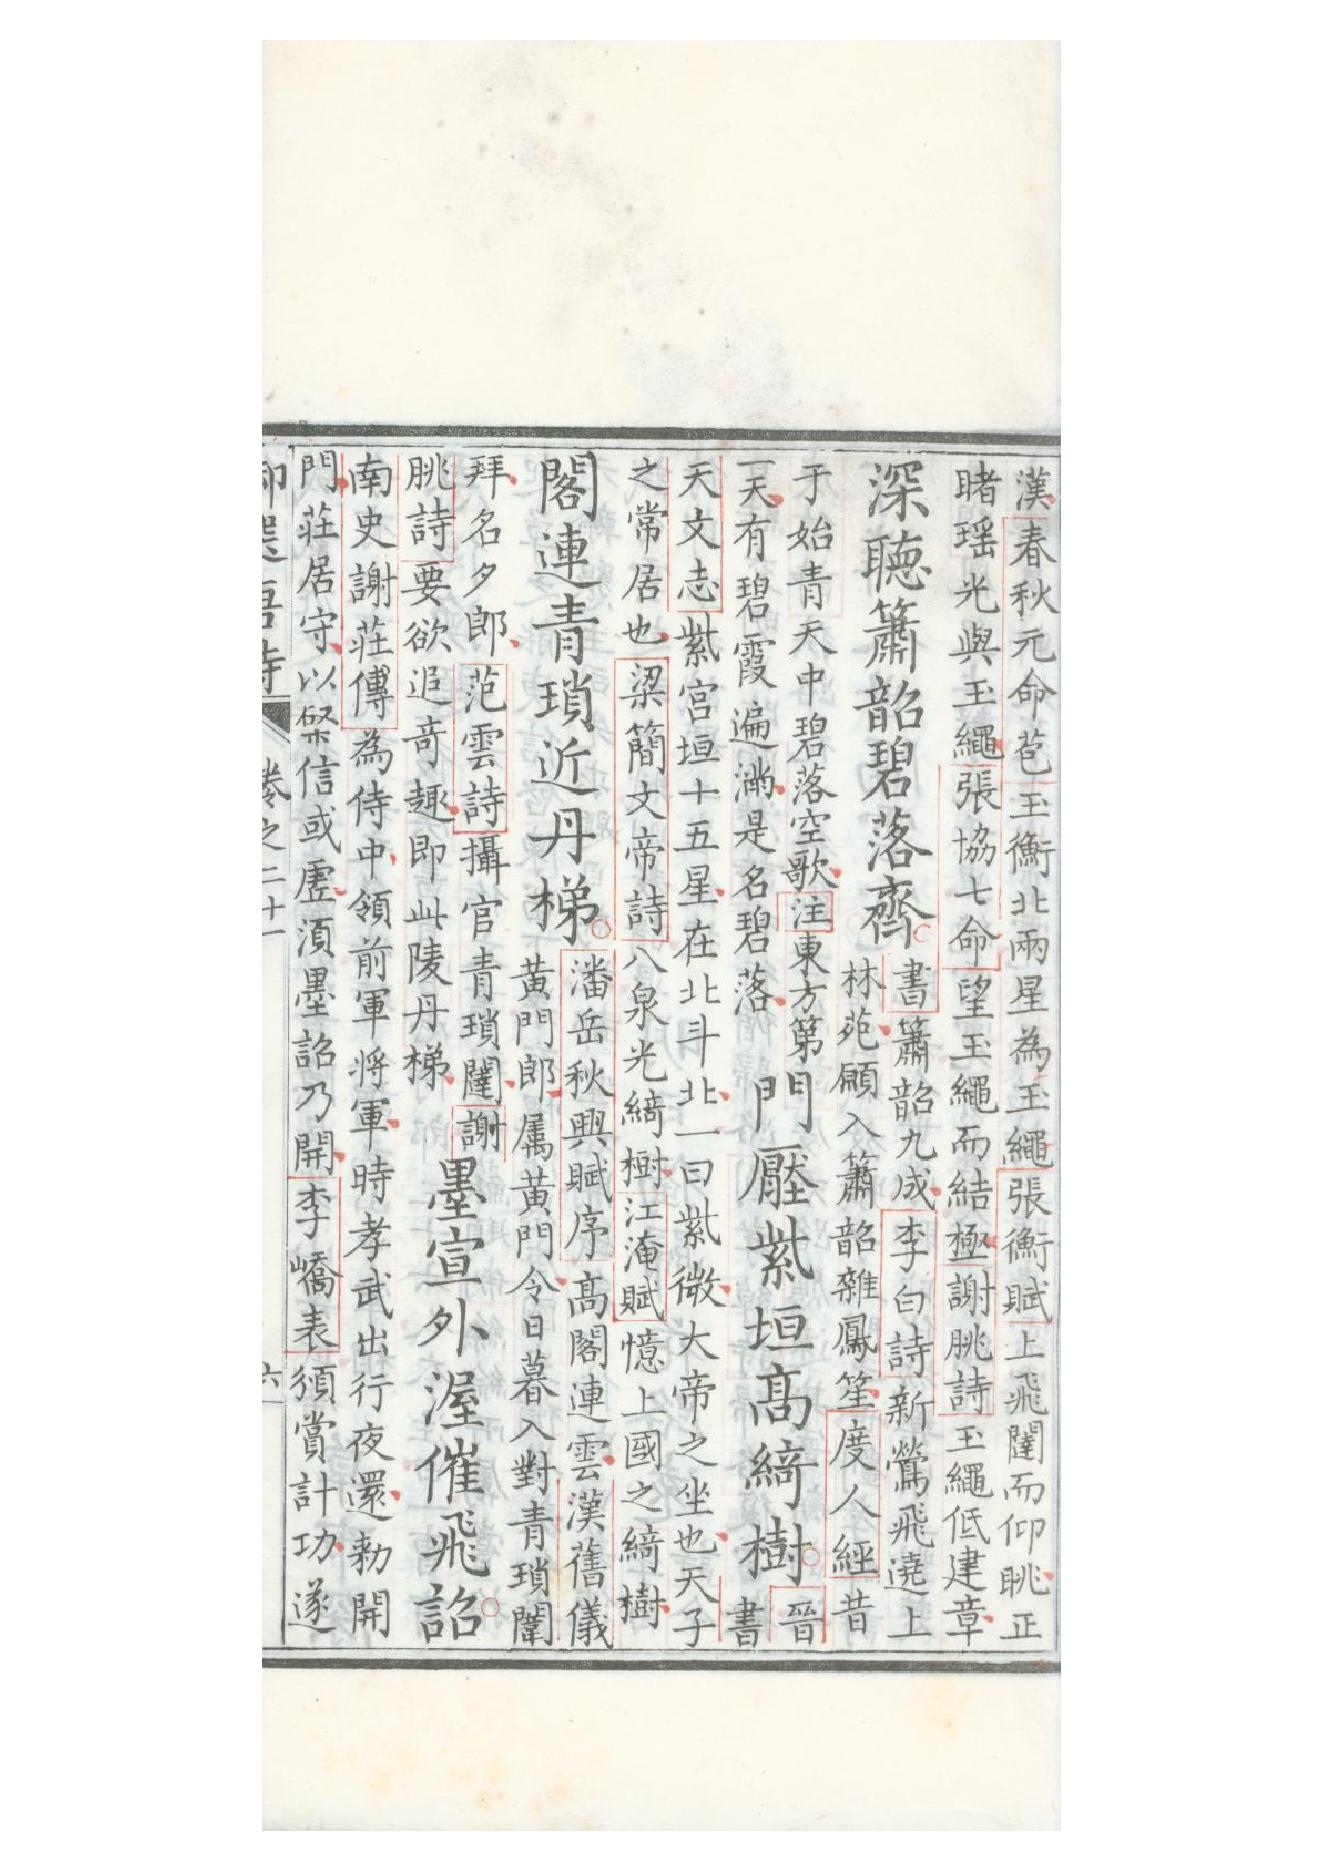 漢春秋元命苞玉衡北兩星為玉繩張衡賦上飛闥而仰眺正
睹瑶光與玉繩張協七命望玉繩而結極謝朓詩玉繩低建章
深聽簫韶碧落齊
書簫韶九成李白詩新鶯飛遶上
林苑願入簫韶雜鳳笙度人經昔
于始青天中碧落空歌注東方第
一天有碧霞遍滿是名碧落
門壓紫垣高綺樹
晉
書
天文志紫宮垣十五星在北斗北一曰紫微大帝之坐也天子
之常居也梁簡文帝詩八泉光綺樹江淹賦憶上國之綺樹
閣連青瑣近丹梯
潘岳秋興賦序高閣連雲漢舊儀
黄門郎属黄門令日暮入對青瑣闥
拜名夕郎范雲詩攝官青瑣闥謝
朓詩要欲追奇趣即此陵丹梯
墨宣外渥催飛詔
南史謝莊傳為侍中領前軍將軍時孝武出行夜還勑開
門莊居守以棨信或虛須墨詔乃開李嶠表頒賞計功遂
卷之二十一
六